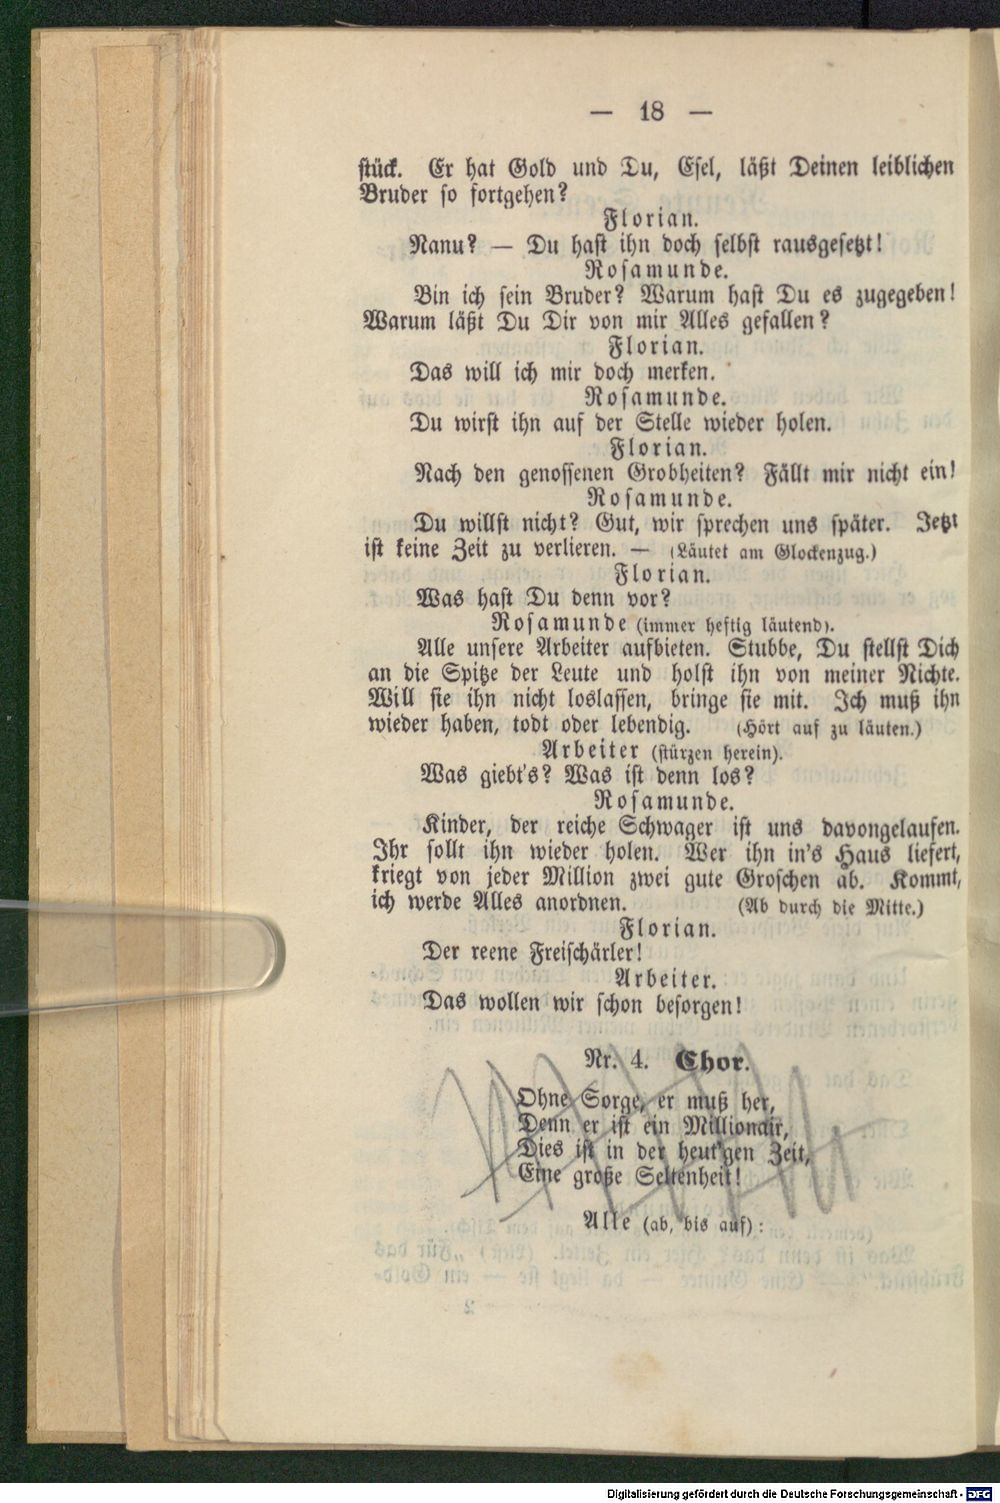 — 18 —
stück. Er hat Gold und Du, Esel, läßt Deinen leiblichen
Bruder so fortgehen?
Florian.
Nanu? — Du hast ihn doch selbst rausgesetzt!
Rosamunde.
Bin ich sein Bruder? Warum hast Du es zugegeben!
Warum läßt Du Dir von mir Alles gefallen?
Florian.
Das will ich mir doch merken.
Rosamunde.
Du wirst ihn auf der Stelle wieder holen.
Florian.
Nach den genossenen Grobheiten? Fällt mir nicht ein!
Rosamunde.
Du willst nicht? Gut, wir sprechen uns später. Jetzt
ist keine Zeit zu verlieren. — (Läutet am Glockenzug.)
Florian.
Was hast Du denn vor?
Rosamunde (immer heftig läutend).
Alle unsere Arbeiter aufbieten. Stubbe, Du stellst Dich
an die Spitze der Leute und holst ihn von meiner Nichte.
Will sie ihn nicht loslassen, bringe sie mit. Ich muß ihn
wieder haben, todt oder lebendig. (Hört auf zu läuten.)
Arbeiter (stürzen herein).
Was giebt's? Was ist denn los?
Rosamunde.
Kinder, der reiche Schwager ist uns davongelaufen.
Ihr sollt ihn wieder holen. Wer ihn in's Haus liefert,
kriegt von jeder Million zwei gute Groschen ab. Kommt,
ich werde Alles anordnen. (Ab durch die Mitte.)
Florian.
Der reene Freischärler!
Arbeiter.
Das wollen wir schon besorgen!
Nr. 4. Chor.
Ohne Sorge, er muß her,
Denn er ist ein Millionair,
Dies ist in der heut'gen Zeit,
Eine große Seltenheit!
Alle (ab, bis auf):
Digitalisierung gefördert durch die Deutsche Forschungsgemeinschaft - DFG